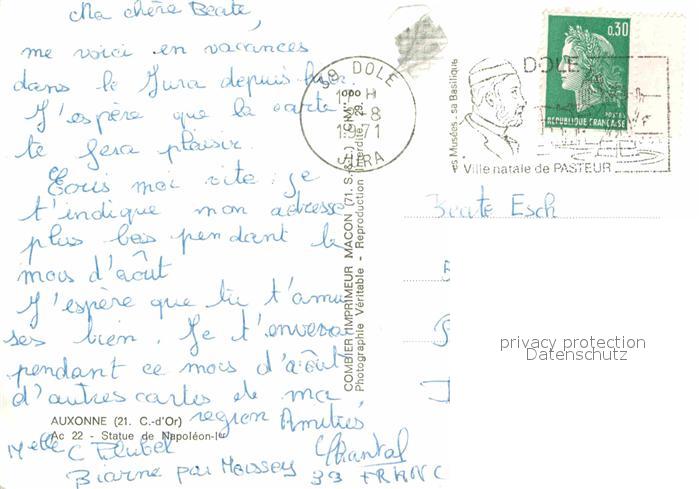 Ma chère Beate,
me voici en vacances
dans le Jura depuis hier.
J'espère que la carte
te fera plaisir.
Ecris moi vite. je
t'indique mon adresse
plus bas pendant le
mois d'août
J'espère que tu t'amu
ses bien. Je t'enverrai
pendant ce mois d'août
d'autres cartes de ma
région Amitiés
Chantal
AUXONNE (21. C.-d'Or)
Ac 22 - Statue de Napoléon-Ier
Melle C
Biarne par Moissey 39 FRANC
COMBIER IMPRIMEUR MACON (71 S.-&-L.)
Photographie Véritable - Reproduction Interdite
39 DOLE
-8
1971
JURA
es Musées . sa Basilique
DOLE
Ville natale de PASTEUR
0,30
POSTES
REPUBLIQUE FRANÇAISE
Beate Esch
privacy protection
Datenschutz